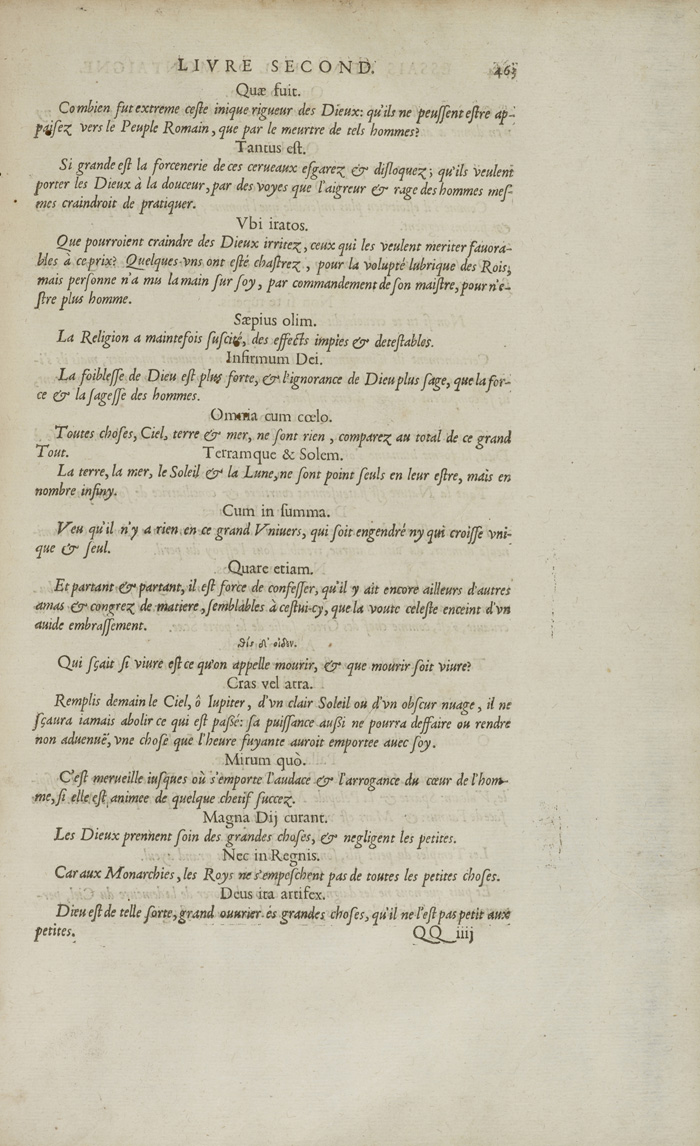 LIVRE SECOND. 463
Quæ fuit.
Combien fut extreme ceste inique rigueur des Dieux: qu'ils ne peussent estre ap-
paisez vers le Peuple Romain, que par le meurtre de tels hommes?
Tantus est.
Si grande est la forcenerie de ces cerueaux esgarez & disloquez; qu'ils veulent
porter les Dieux à la douceur, par des voyes que l'aigreur & rage des hommes mes-
mes craindroit de pratiquer.
Vbi iratos.
Que pourroient craindre des Dieux irritez, ceux qui les veulent meriter fauora-
bles à ce prix? Quelques-vns ont esté chastrez, pour la volupté lubrique des Rois;
mais personne n'a mis la main sur soy, par commandement de son maistre, pour n'e-
stre plus homme.
Sæpius olim.
La Religion a maintefois suscité, des effects impies & detestables.
Infirmum Dei.
La foiblesse de Dieu est plus forte, & l'ignorance de Dieu plus sage, que la for-
ce & la sagesse des hommes.
Omnia cum cœlo.
Toutes choses, Ciel, terre & mer, ne sont rien, comparez au total de ce grand
Tout. Terramque & Solem.
La terre, la mer, le Soleil & la Lune, ne sont point seuls en leur estre, mais en
nombre infiny.
Cum in summa.
Veu qu'il n'y a rien en ce grand Vniuers, qui soit engendré ny qui croisse vni-
que & seul.
Quare etiam.
Et partant & partant, il est force de confesser, qu'il y ait encore ailleurs d'autres
amas & congrez de matiere, semblables à cestui-cy, que la voute celeste enceint d'vn
auide embrassement.
Qui sçait si viure est ce qu'on appelle mourir, & que mourir soit viure?
Cras vel atra.
Remplis demain le Ciel, ô Iupiter, d'vn clair Soleil ou d'vn obscur nuage, il ne
sçaura iamais abolir ce qui est passé: sa puissance aussi ne pourra deffaire ou rendre
non aduenuë, vne chose que l'heure fuyante auroit emportee auec soy.
Mirum quò.
C'est merueille iusques où s'emporte l'audace & l'arrogance du cœur de l'hom-
me, si elle est animee de quelque chetif succez.
Magna Dij curant.
Les Dieux prennent soin des grandes choses, & negligent les petites.
Nec in Regnis.
Car aux Monarchies, les Roys ne s'empeschent pas de toutes les petites choses.
Deus ita artifex.
Dieu est de telle sorte, grand ouurier és grandes choses, qu'il ne l'est pas petit aux
petites. QQ iiij